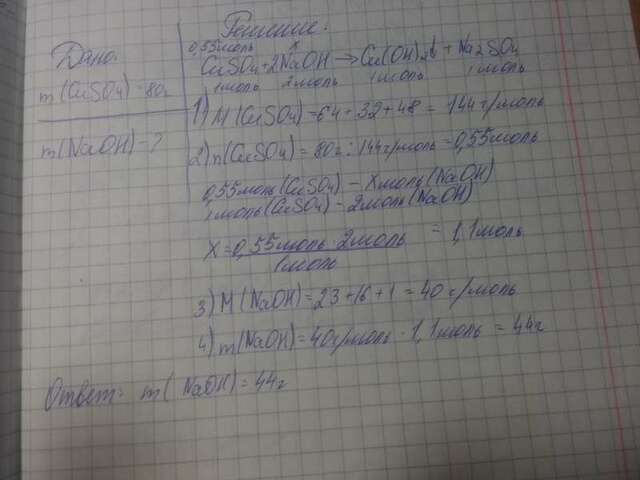 Решение:
Дано:
0,55моль x
CuSO4+2NaOH→Cu(OH)2↓+Na2SO4
1моль 2моль 1моль 1моль
m(CuSO4)=80г
m(NaOH)-?
1) M(CuSO4)=64+32+48=144г/моль
2) n(CuSO4)=80г:144г/моль=0,55моль
0,55моль(CuSO4)-Xмоль(NaOH)
1моль(CuSO4)-2моль(NaOH)
X=0,55моль·2моль = 1,1моль
1моль
3) M(NaOH)=23+16+1=40г/моль
4) m(NaOH)=40г/моль·1,1моль=44г
Ответ: m(NaOH)=44г